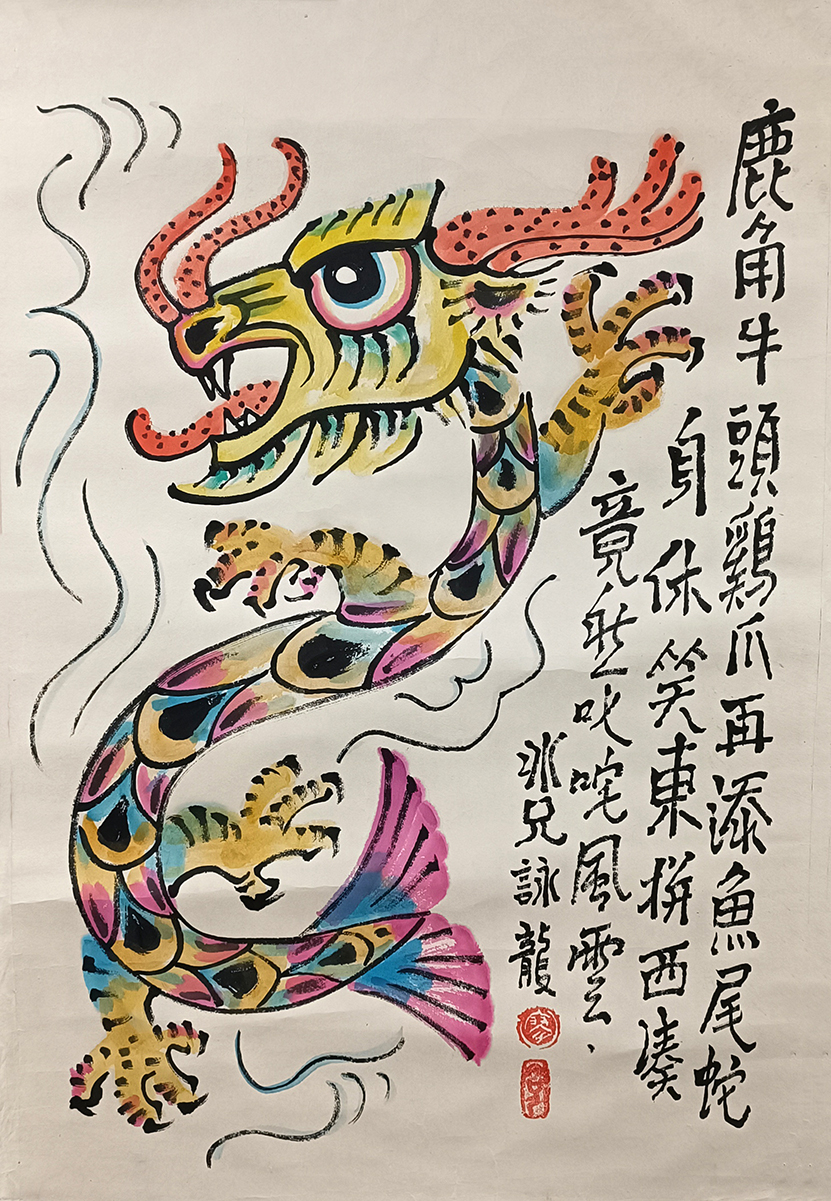 鹿角牛頭鷄爪再添魚尾蛇
身休笑東拼西湊
竟然叱咤風雲、
兆兄詠龍